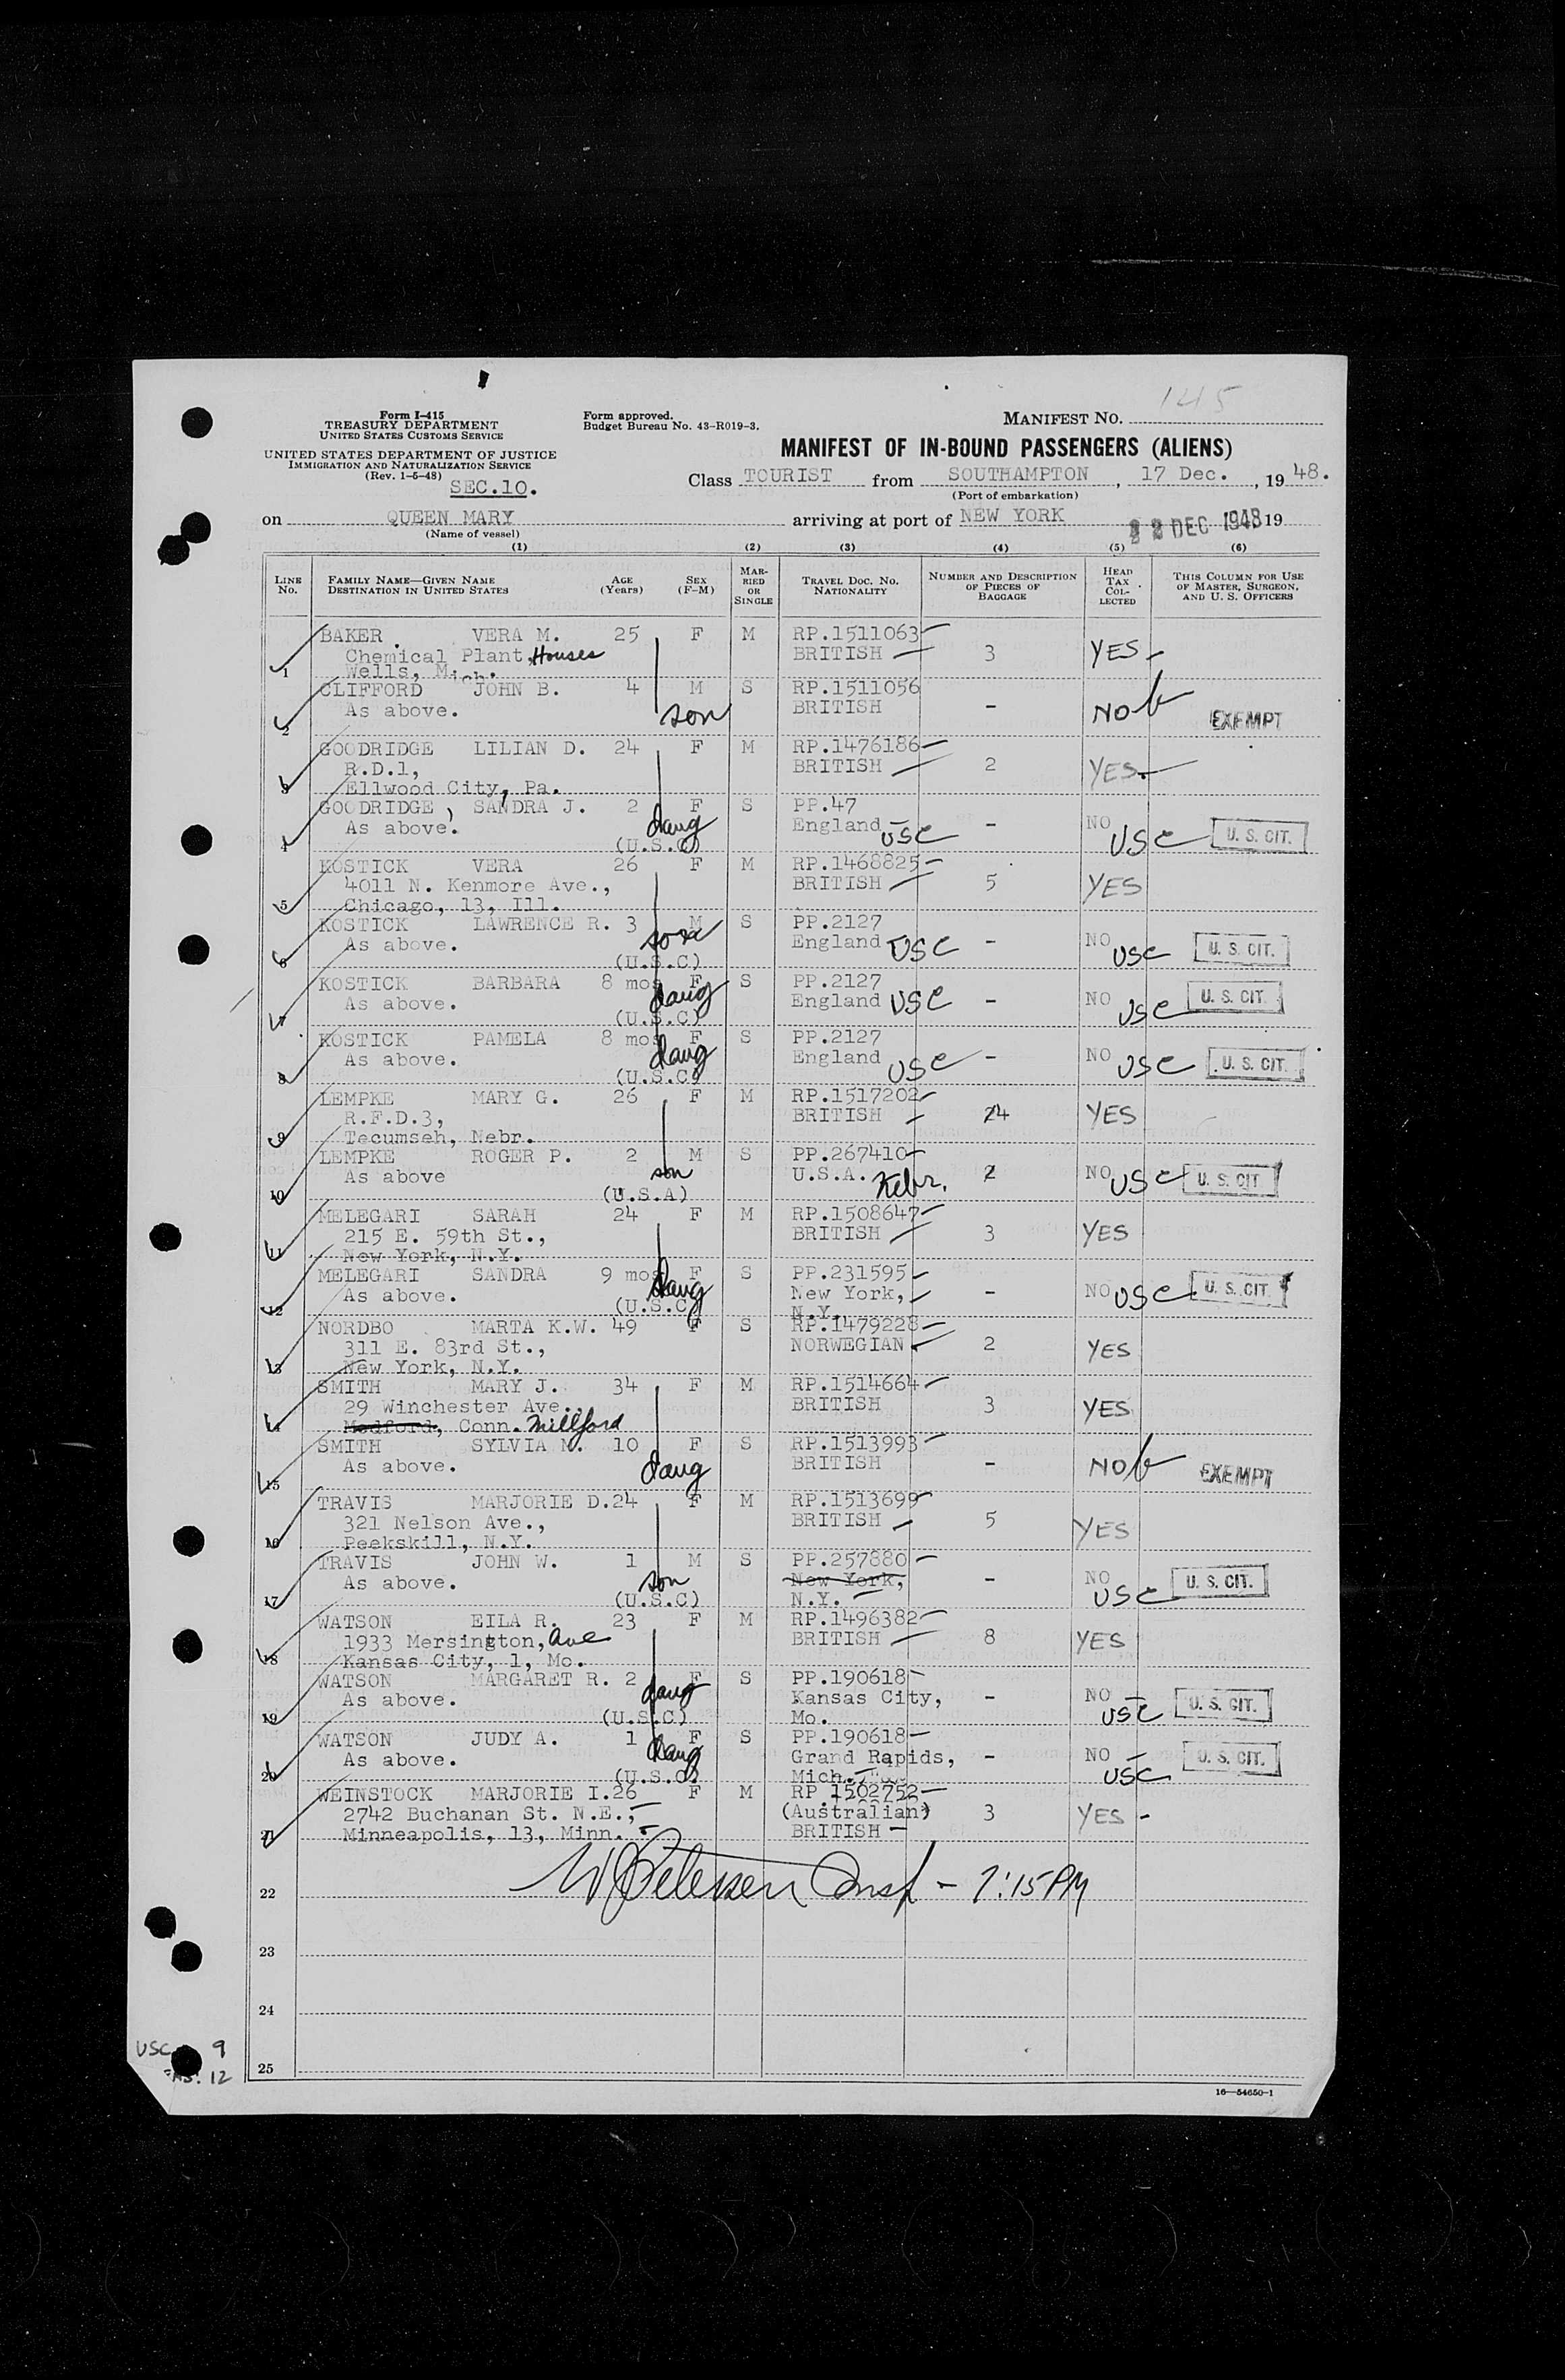 145
Form I-415
TREASURY DEPARTMENT
UNITED STATES CUSTOMS SERVICE
UNITED STATES DEPARTMENT OF JUSTICE
IMMIGRATION AND NATURALIZATION SERVICE
(Rev. 1-5-48)
SEC.10.
Form approved.
Budget Bureau No. 43-R019-3.
MANIFEST NO.
MANIFEST OF IN-BOUND PASSENGERS (ALIENS)
Class TOURIST from SOUTHAMPTON, 17 Dec., 1948.
(Port of embarkation)
on QUEEN MARY arriving at port of NEW YORK 22 DEC 1948 19
(Name of vessel)
(1) (2) (3) (4) (5) (6)
LINE No. FAMILY NAME—GIVEN NAME DESTINATION IN UNITED STATES AGE (Years) SEX (F-M) MARRIED OR SINGLE TRAVEL DOC. NO. NATIONALITY NUMBER AND DESCRIPTION OF PIECES OF BAGGAGE HEAD TAX COLLECTED THIS COLUMN FOR USE OF MASTER, SURGEON, AND U. S. OFFICERS
BAKER VERA M. 25 F M RP.1511063
Chemical Plant, Houses BRITISH 3 YES
1 Wells, Mich.
CLIFFORD JOHN B. 4 M S RP.1511056
As above. son BRITISH - NO EXEMPT
2
GOODRIDGE LILIAN D. 24 F M RP.1476186
R.D.1, BRITISH 2 YES
3 Ellwood City, Pa.
GOODRIDGE, SANDRA J. 2 F S PP.47
As above. daug England USC - NO USC U. S. CIT.
4 (U.S.C)
KOSTICK VERA 26 F M RP.1468825
4011 N. Kenmore Ave., BRITISH 5 YES
5 Chicago, 13, Ill.
KOSTICK LAWRENCE R. 3 M S PP.2127
As above. son England USC - NO USC U. S. CIT.
6 (U.S.C)
KOSTICK BARBARA 8 mos F S PP.2127
As above. daug England USC - NO USC U. S. CIT.
7 (U.S.C)
KOSTICK PAMELA 8 mos F S PP.2127
As above. daug England USC - NO USC U. S. CIT.
8 (U.S.C)
LEMPKE MARY G. 26 F M RP.1517202
R.F.D.3, BRITISH 24 YES
9 Tecumseh, Nebr.
LEMPKE ROGER P. 2 M S PP.267410
As above son U.S.A. Nebr. 2 NO USC U. S. CIT.
10 (U.S.A)
MELEGARI SARAH 24 F M RP.1508647
215 E. 59th St., BRITISH 3 YES
11 New York, N.Y.
MELEGARI SANDRA 9 mos F S PP.231595
As above. daug New York, - NO USC U. S. CIT.
12 (U.S.C N.Y.
NORDBO MARTA K.W. 49 F S RP.1479228
311 E. 83rd St., NORWEGIAN 2 YES
13 New York, N.Y.
SMITH MARY J. 34 F M RP.1514664
29 Winchester Ave., BRITISH 3 YES
14 Medford, Conn. Millford
SMITH SYLVIA M. 10 F S RP.1513993
As above. daug BRITISH - NO EXEMPT
15
TRAVIS MARJORIE D. 24 F M RP.1513699
321 Nelson Ave., BRITISH 5 YES
16 Peekskill, N.Y.
TRAVIS JOHN W. 1 M S PP.257880
As above. son New York, - NO USC U. S. CIT.
17 (U.S.C) N.Y.
WATSON EILA R. 23 F M RP.1496382
1933 Mersington, Ave BRITISH 8 YES
18 Kansas City, 1, Mo.
WATSON MARGARET R. 2 F S PP.190618
As above. daug Kansas City, - NO USC U. S. CIT.
19 (U.S.C) Mo.
WATSON JUDY A. 1 F S PP.190618
As above. daug Grand Rapids, - NO USC U. S. CIT.
20 (U.S.C) Mich.
WEINSTOCK MARJORIE I. 26 F M RP 1502752
2742 Buchanan St. N.E., (Australian) 3 YES -
21 Minneapolis, 13, Minn. BRITISH
22 W Petersen Insp - 7:15 PM
23
24
25
USC 9
12
16—54650-1